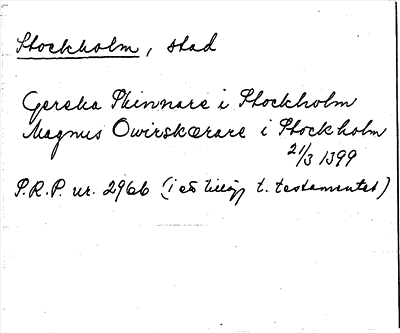 Stockholm, stad
Gereka Skinnare i Stockholm
Magnus Owirskærare i Stockholm
21/3 1399
P.R.P. nr. 2966 (i ett tillägg t. testamentet)